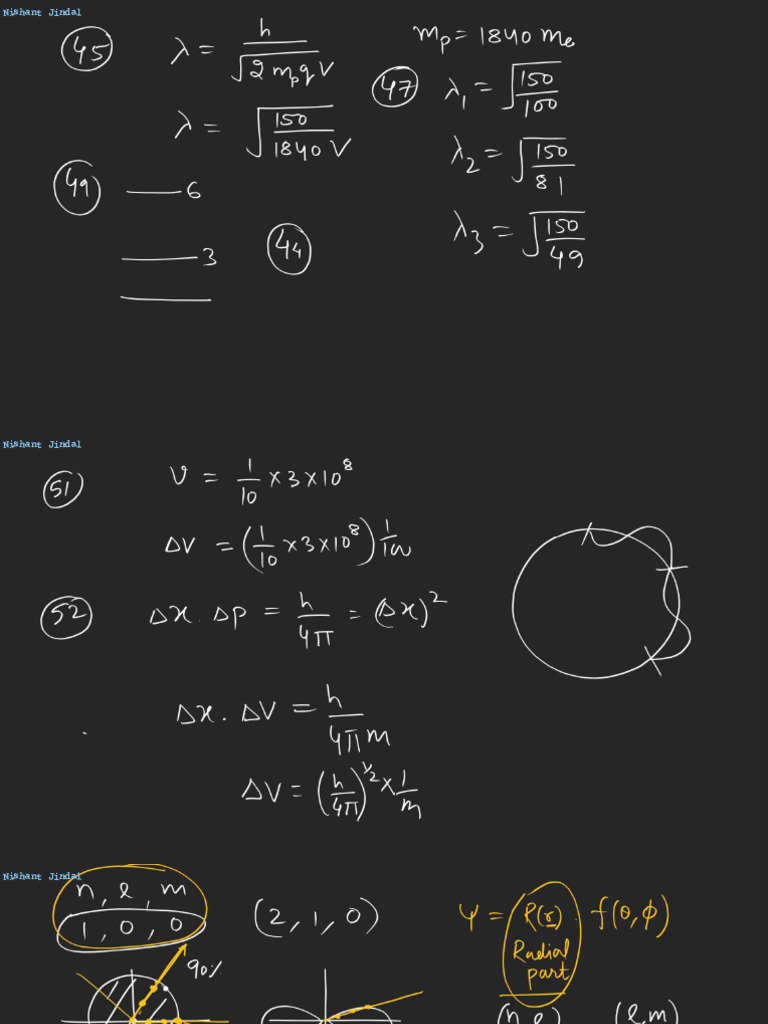 Nishant Jindal
45 λ = h / √(2 m_p q V)
λ = √(150 / 1840 V)
m_p = 1840 m_e
47 λ₁ = √(150 / 100)
λ₂ = √(150 / 81)
λ₃ = √(150 / 49)
49 6
3
44
Nishant Jindal
51 v = 1/10 × 3 × 10⁸
Δv = (1/10 × 3 × 10⁸) 1/100
52 Δx . Δp = h/4π = (Δx)²
Δx . ΔV = h/4πm
ΔV = (h/4π)^1/2 × 1/m
Nishant Jindal
n, l, m
1, 0, 0
90%
(2, 1, 0)
Ψ = R(r) . f(θ, φ)
Radial
part
(n, l) (l, m)